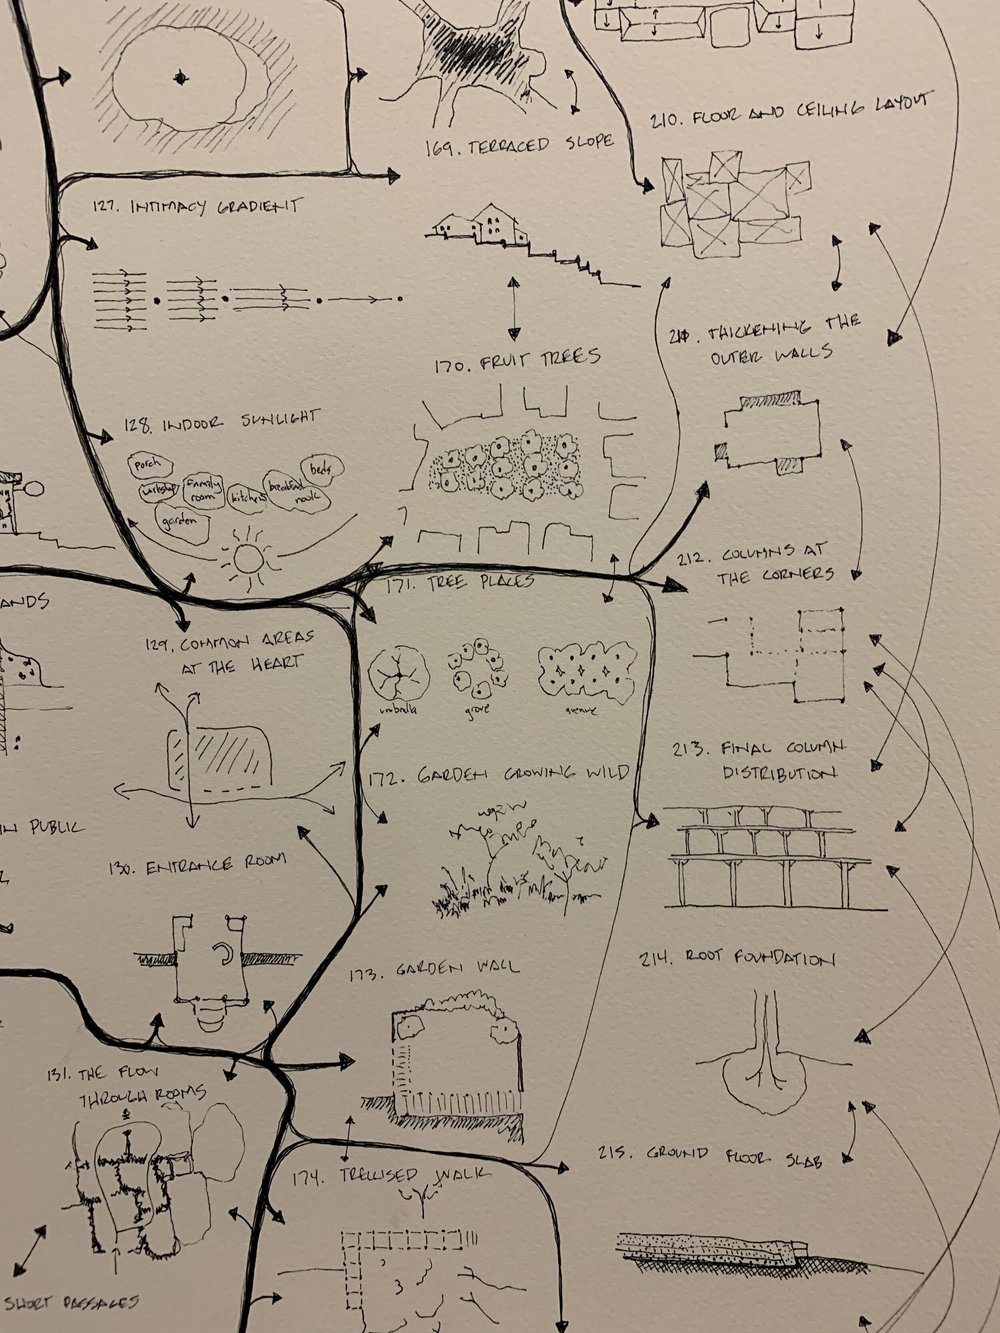 127. INTIMACY GRADIENT
128. INDOOR SUNLIGHT
porch
workshop
family
room
kitchen
breakfast
nook
beds
garden
ANDS
129. COMMON AREAS
AT THE HEART
IN PUBLIC
130. ENTRANCE ROOM
131. THE FLOW
THROUGH ROOMS
SHORT PASSAGES
169. TERRACED SLOPE
170. FRUIT TREES
171. TREE PLACES
umbrella
grove
avenue
172. GARDEN GROWING WILD
173. GARDEN WALL
174. TRELLISED WALK
210. FLOOR AND CEILING LAYOUT
211. THICKENING THE
OUTER WALLS
212. COLUMNS AT
THE CORNERS
213. FINAL COLUMN
DISTRIBUTION
214. ROOT FOUNDATION
215. GROUND FLOOR SLAB